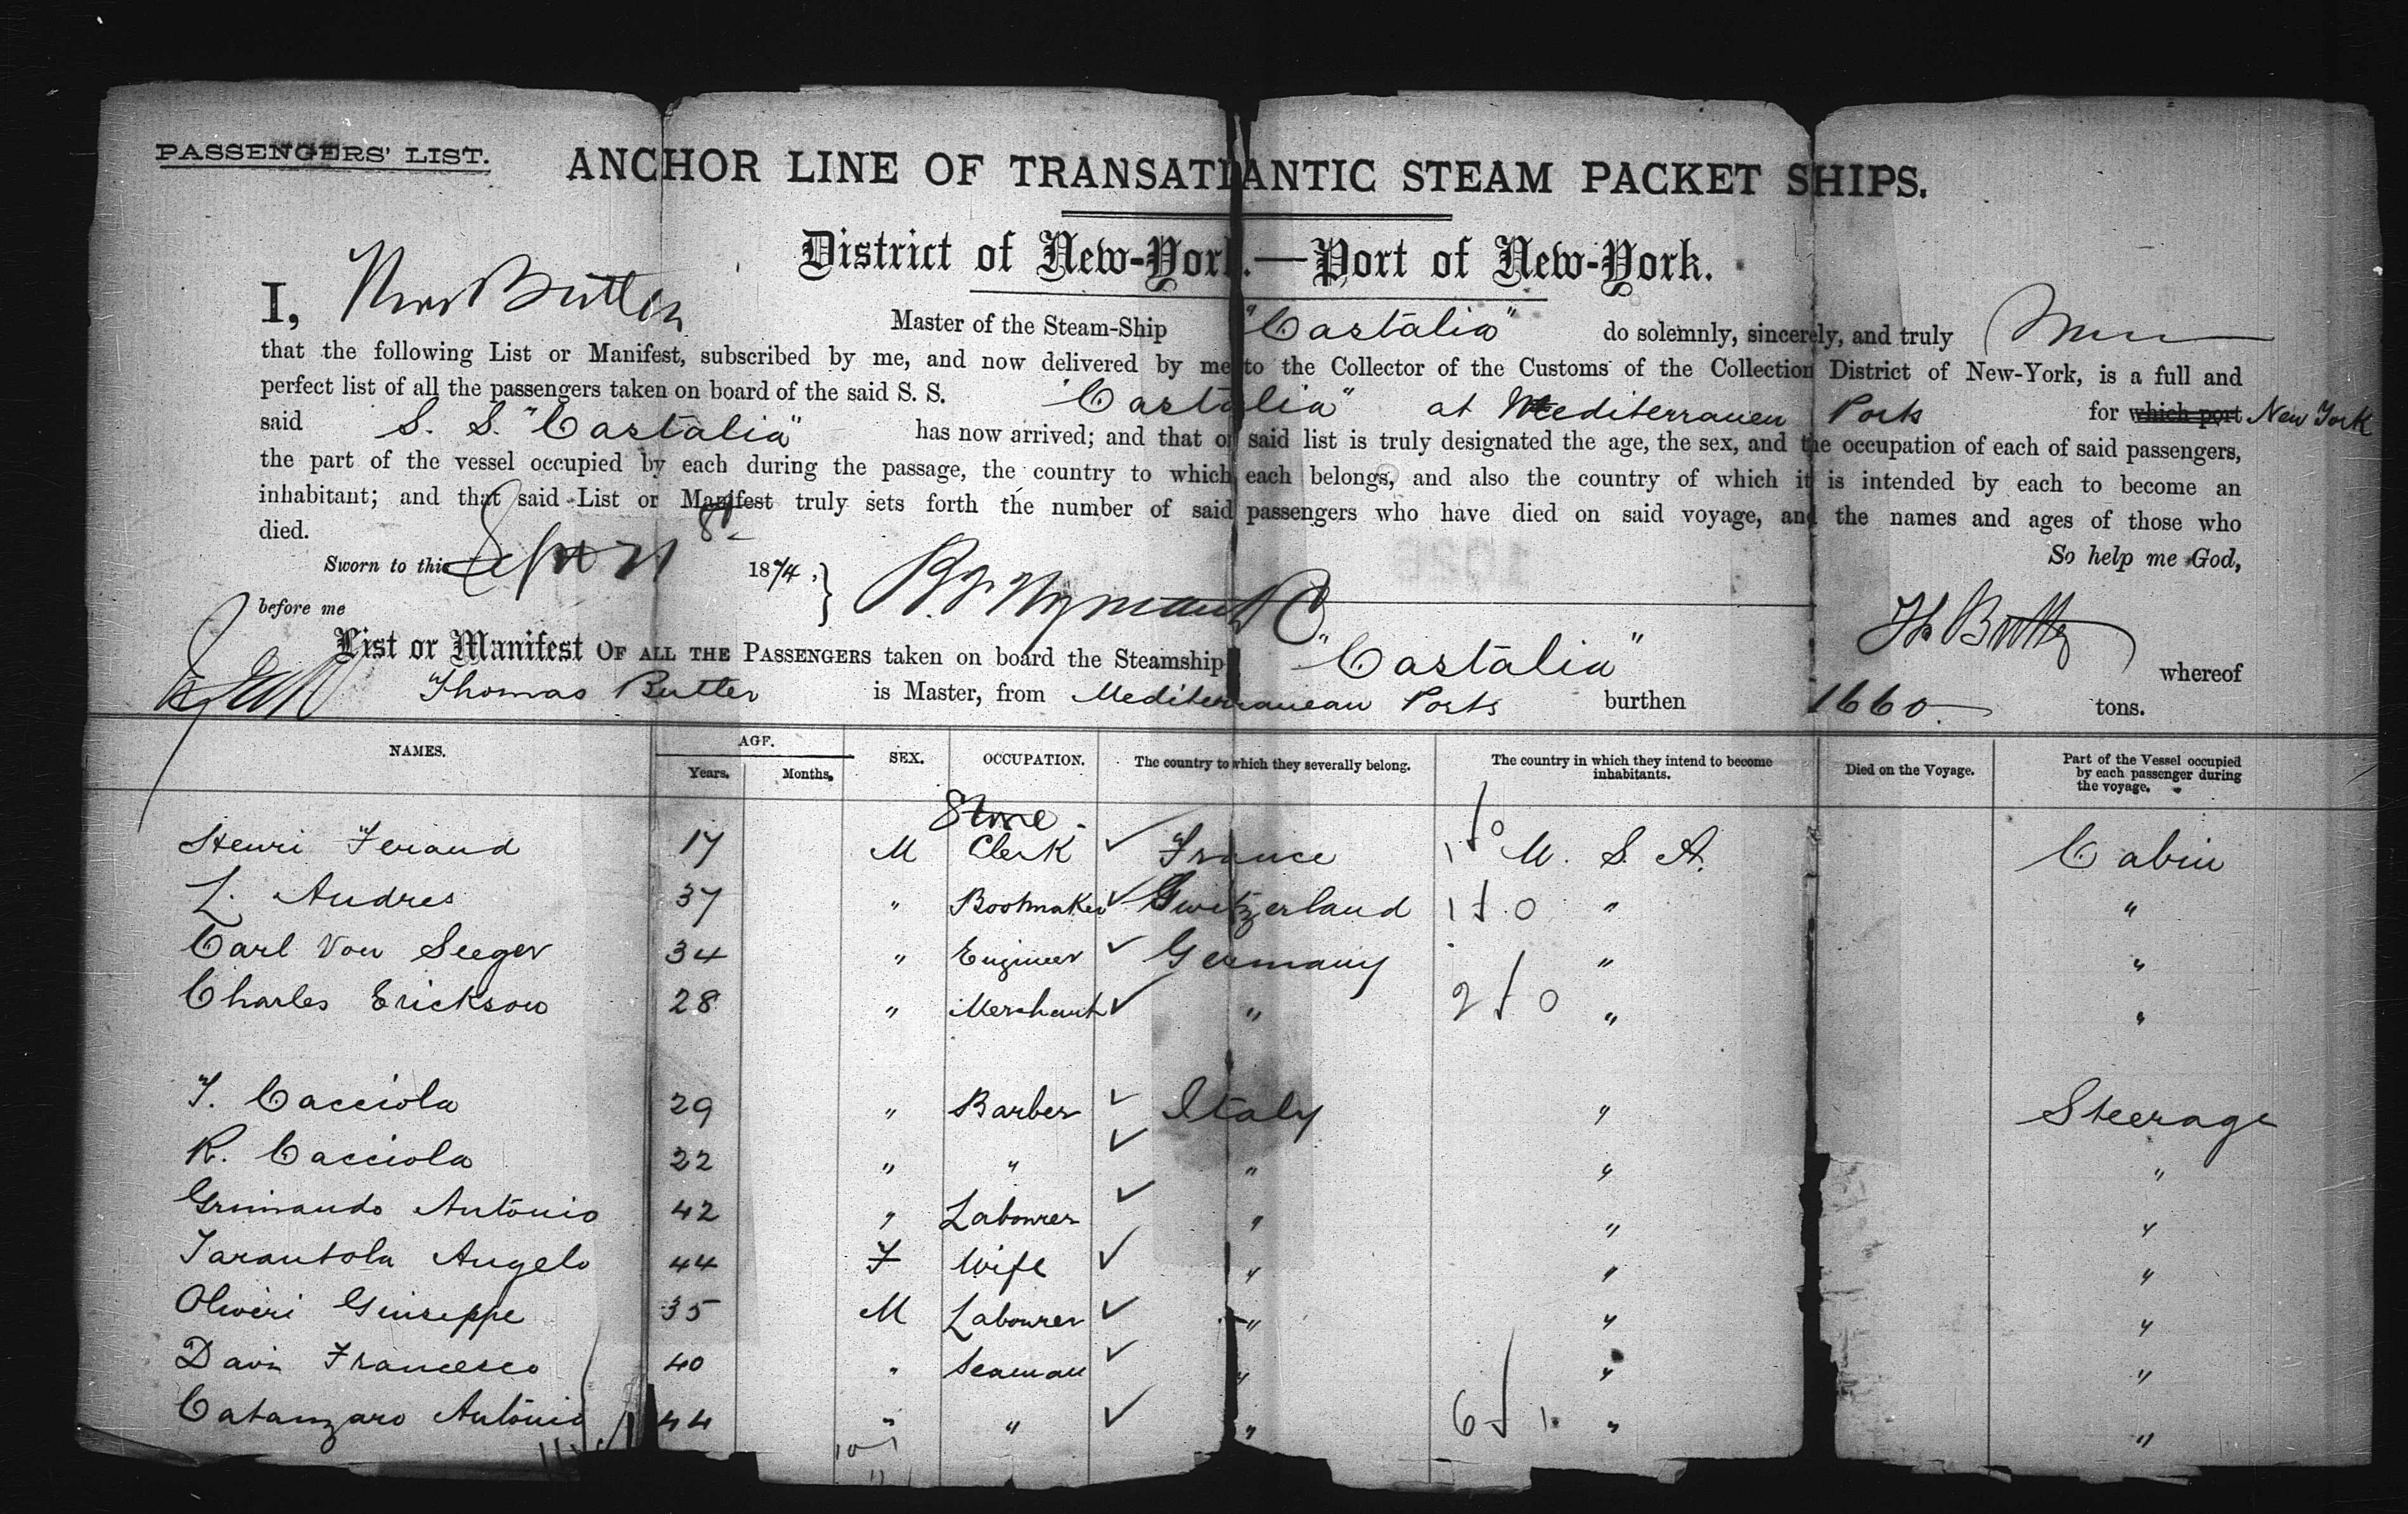 PASSENGERS' LIST.
ANCHOR LINE OF TRANSATLANTIC STEAM PACKET SHIPS.
District of New-York.—Port of New-York.
I, Thos Butler Master of the Steam-Ship "Castalia" do solemnly, sincerely, and truly
that the following List or Manifest, subscribed by me, and now delivered by me to the Collector of the Customs of the Collection District of New-York, is a full and
perfect list of all the passengers taken on board of the said S. S. "Castalia" at Mediterranean Ports for which port New York
said S. S. "Castalia" has now arrived; and that on said list is truly designated the age, the sex, and the occupation of each of said passengers,
the part of the vessel occupied by each during the passage, the country to which each belongs, and also the country of which it is intended by each to become an
inhabitant; and that said List or Manifest truly sets forth the number of said passengers who have died on said voyage, and the names and ages of those who
died.
So help me God,
Sworn to this 8 1874,
before me
Th Butler
List or Manifest OF ALL THE PASSENGERS taken on board the Steamship "Castalia" whereof
Thomas Butler is Master, from Mediterranean Ports burthen 1660 tons.
NAMES. AGE. Years. Months. SEX. OCCUPATION. The country to which they severally belong. The country in which they intend to become inhabitants. Died on the Voyage. Part of the Vessel occupied by each passenger during the voyage.
Henri Feraud 17 M Store Clerk ✓ France 1 0 U. S. A. Cabin
L. Andres 37 " Bootmaker ✓ Switzerland 1 0 " "
Carl Von Seeger 34 " Engineer ✓ Germany " "
Charles Erickson 28 " Merchant ✓ " 2 0 " "
F. Cacciola 29 " Barber ✓ Italy " Steerage
R. Cacciola 22 " " ✓ " " "
Grimaudo Antonio 42 " Labourer ✓ " " "
Tarantola Angelo 44 F Wife ✓ " " "
Oliveri Giuseppe 35 M Labourer ✓ " " "
Davi Francesco 40 " Seaman ✓ " " "
Catanzaro Antonio 44 " " ✓ " 6 1 " "
10 1
11